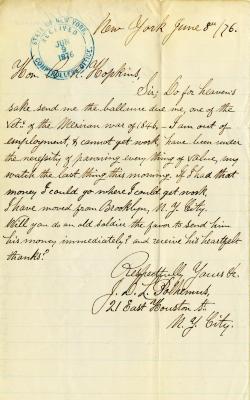 New York June 8th/76.
STATE OF NEW YORK
RECEIVED
JUN
9
1876
CONTROLLER'S OFFICE
Hon. Hopkins,
Sir, Do for heavens
sake send me the ballence due me, one of the
Vets. of the Mexican war of 1846, - I am out of
employment, & cannot get work, have been under
the necessity of pawning every thing of value, my
watch the last thing this morning, if I had that
money I could go where I could get work
I have moved from Brooklyn, N.Y. City.
Will you do an old soldier the favor to send him
his money immediately? and receive his heartfelt
thanks?
Respectfully Yours &c.
J. D. L. Polhemus,
21 East Houston St.
N.Y. City.